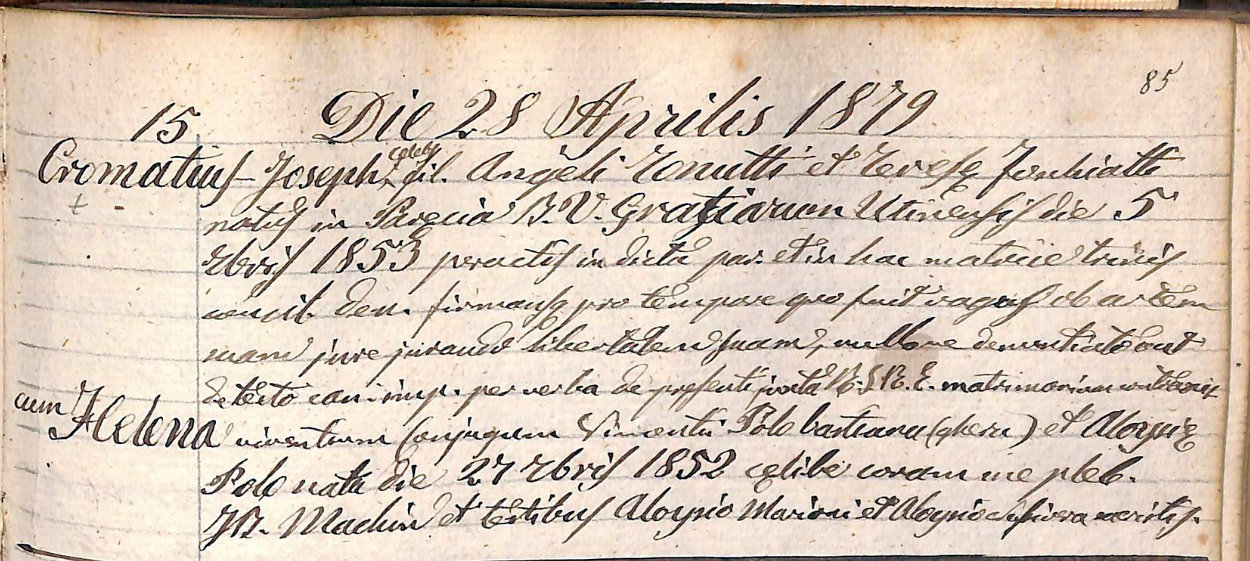 85
15 Die 28 Aprilis 1879
Cromatius Joseph celebs fil. Angeli Tonutti et Teresæ
natus in Parecia B. V. Gratiarum Utinensis die 5
Xbris 1853 peractis in dicta par. et in hac matrice trinis
den. firmans pro tempore quo fuit vagus ob artem
suam jure jurando libertatem suam, nulloque denuntiato aut
detecto can. imp. per verba de presenti juxta R. S. R. E. matrimonium
cum Helena viventium Conjugum Vincentii Polo bastianu et Aloysiæ
Polo nata die 27 Xbris 1852 cælibe coram me pleb.
Machin et testibus Aloysio Marioni et Aloysio